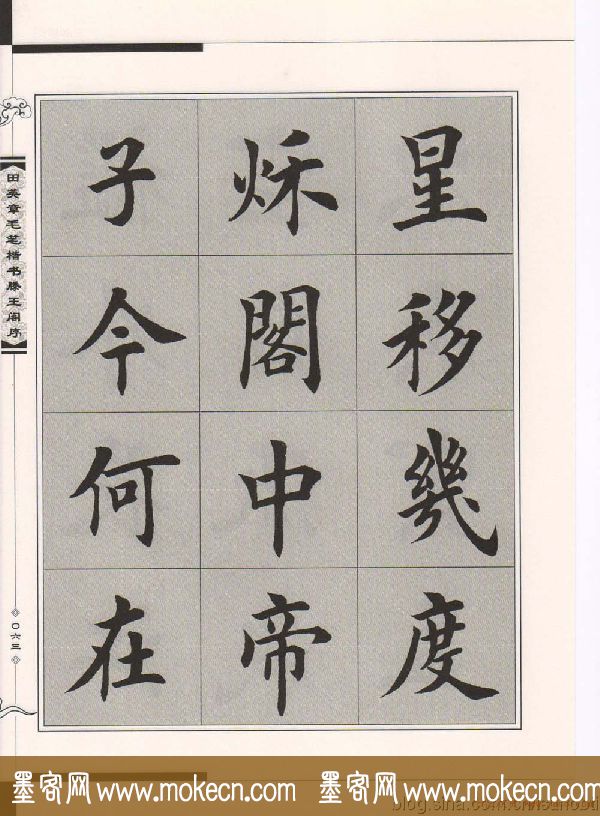 星移幾度
秌閣中帝
子今何在
田英章毛笔楷书滕王阁序
〇六三
墨客网 www.mokecn.com 墨客网 www.mokecn.com